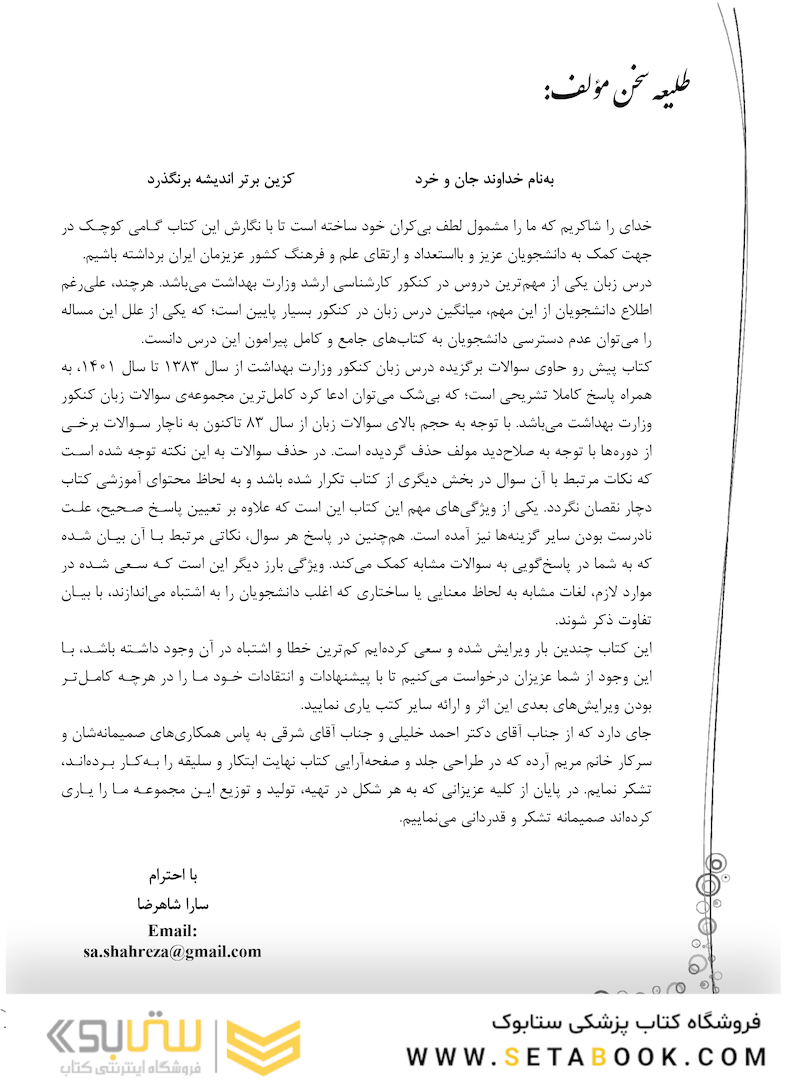 طلیعه سخن مؤلف:
به‌نام خداوند جان و خرد کزین برتر اندیشه برنگذرد
خدای را شاکریم که ما را مشمول لطف بی‌کران خود ساخته است تا با نگارش این کتاب گامی کوچک در
جهت کمک به دانشجویان عزیز و بااستعداد و ارتقای علم و فرهنگ کشور عزیزمان ایران برداشته باشیم.
درس زبان یکی از مهم‌ترین دروس در کنکور کارشناسی ارشد وزارت بهداشت می‌باشد. هرچند، علی‌رغم
اطلاع دانشجویان از این مهم، میانگین درس زبان در کنکور بسیار پایین است؛ که یکی از علل این مساله
را می‌توان عدم دسترسی دانشجویان به کتاب‌های جامع و کامل پیرامون این درس دانست.
کتاب پیش رو حاوی سوالات برگزیده درس زبان کنکور وزارت بهداشت از سال ۱۳۸۳ تا سال ۱۴۰۱، به
همراه پاسخ کاملا تشریحی است؛ که بی‌شک می‌توان ادعا کرد کامل‌ترین مجموعه‌ی سوالات زبان کنکور
وزارت بهداشت می‌باشد. با توجه به حجم بالای سوالات زبان از سال ۸۳ تاکنون به ناچار سوالات برخی
از دوره‌ها با توجه به صلاح‌دید مولف حذف گردیده است. در حذف سوالات به این نکته توجه شده است
که نکات مرتبط با آن سوال در بخش دیگری از کتاب تکرار شده باشد و به لحاظ محتوای آموزشی کتاب
دچار نقصان نگردد. یکی از ویژگی‌های مهم این کتاب این است که علاوه بر تعیین پاسخ صحیح، علت
نادرست بودن سایر گزینه‌ها نیز آمده است. هم‌چنین در پاسخ هر سوال، نکاتی مرتبط با آن بیان شده
که به شما در پاسخ‌گویی به سوالات مشابه کمک می‌کند. ویژگی بارز دیگر این است که سعی شده در
موارد لازم، لغات مشابه به لحاظ معنایی یا ساختاری که اغلب دانشجویان را به اشتباه می‌اندازند، با بیان
تفاوت ذکر شوند.
این کتاب چندین بار ویرایش شده و سعی کرده‌ایم کم‌ترین خطا و اشتباه در آن وجود داشته باشد، با
این وجود از شما عزیزان درخواست می‌کنیم تا با پیشنهادات و انتقادات خود ما را در هرچه کامل‌تر
بودن ویرایش‌های بعدی این اثر و ارائه سایر کتب یاری نمایید.
جای دارد که از جناب آقای دکتر احمد خلیلی و جناب آقای شرقی به پاس همکاری‌های صمیمانه‌شان و
سرکار خانم مریم آرده که در طراحی جلد و صفحه‌آرایی کتاب نهایت ابتکار و سلیقه را به‌کار برده‌اند،
تشکر نمایم. در پایان از کلیه عزیزانی که به هر شکل در تهیه، تولید و توزیع این مجموعه ما را یاری
کرده‌اند صمیمانه تشکر و قدردانی می‌نماییم.
با احترام
سارا شاهرضا
Email:
sa.shahreza@gmail.com
فروشگاه کتاب پزشکی ستابوک
WWW.SETABOOK.COM
ستابوک
فروشگاه اینترنتی کتاب